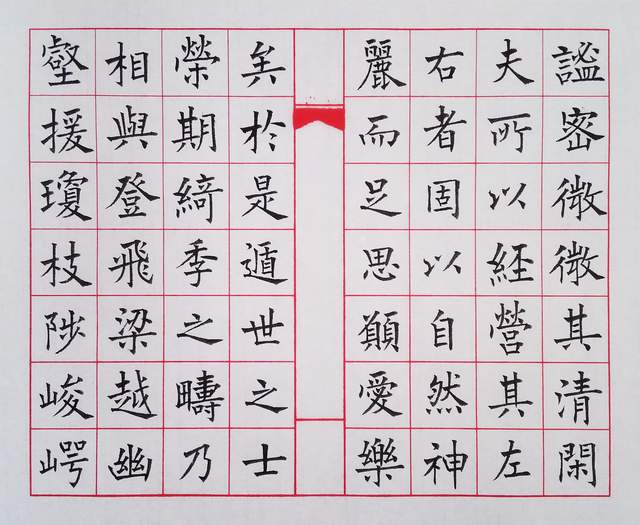 謐密微微其清閑
夫所以經營其左
右者固以自然神
麗而足思願愛樂
矣於是遁世之士
榮期綺季之疇乃
相與登飛梁越幽
壑援瓊枝陟峻崿